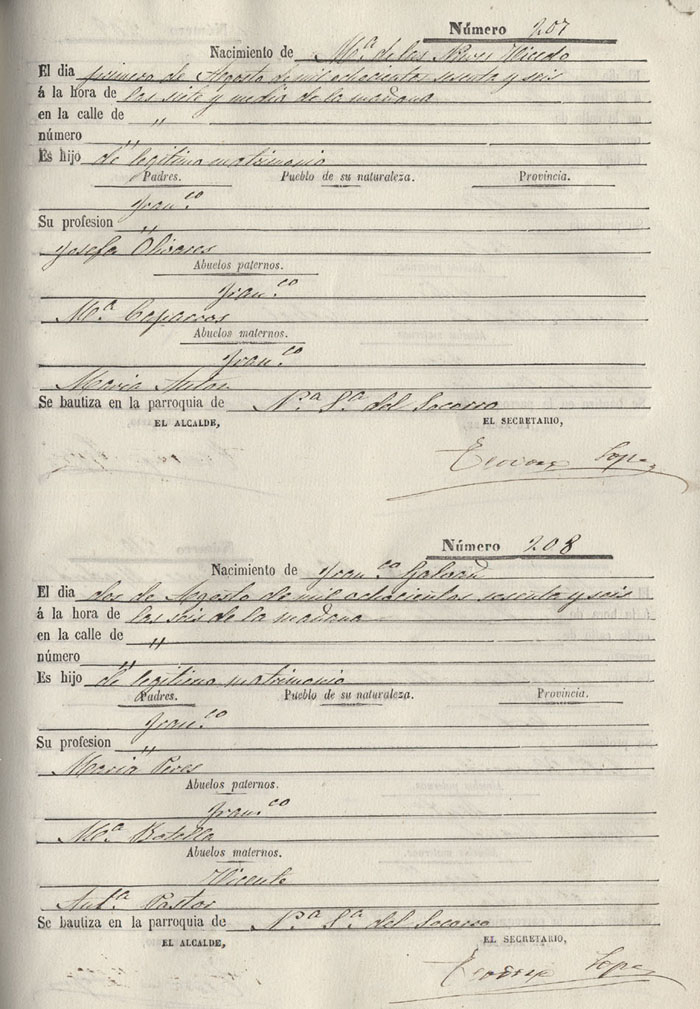 Número 207
Nacimiento de Mª de las Nieves Vicedo
El dia primero de Agosto de mil ochocientos sesenta y seis
á la hora de las siete y media de la mañana
en la calle de "
número "
Es hijo de legitimo matrimonio
Padres. Pueblo de su naturaleza. Provincia.
Franco
Su profesion "
Josefa Olivares
Abuelos paternos.
Franco
Mª Caparros
Abuelos maternos.
Franco
Maria Anton
Se bautiza en la parroquia de Nª Sª del Socorro
EL ALCALDE, EL SECRETARIO,
Lopez
Número 208
Nacimiento de Franco Galvañ
El dia dos de Agosto de mil ochocientos sesenta y seis
á la hora de las seis de la mañana
en la calle de "
número "
Es hijo de legitimo matrimonio
Padres. Pueblo de su naturaleza. Provincia.
Franco
Su profesion "
Maria Peres
Abuelos paternos.
Franco
Mª Botella
Abuelos maternos.
Vicente
Antª Pastor
Se bautiza en la parroquia de Nª Sª del Socorro
EL ALCALDE, EL SECRETARIO,
Lopez